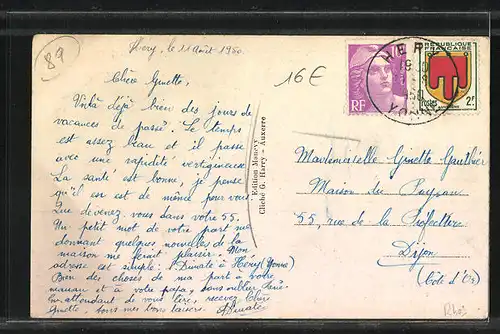 89
Héry, le 11 Août 1950.
16 E
HERY
YONNE
RF
REPUBLIQUE
FRANCAISE
2f
Chère Ginette,
Voilà déjà bien des jours de
vacances de passé. Le temps
est assez beau et il passe
avec une rapidité vertigineuse
La santé est bonne, je pense
qu'il en est de même pour vous.
Que devenez vous dans votre 55.
Un petit mot de votre part me
donnant quelques nouvelles de la
maison me ferait plaisir. Mon
adresse est simple: à Héry (Yonne)
Bien des choses de ma part à votre
maman et à votre papa, sans oublier
En attendant de vous lire, recevez Chère
Ginette, tous mes bons baisers.
Edition Mancry
Cliché G. Harry - Auxerre
Mademoiselle Ginette Gauthier
Maison du Paysan
55, rue de la Préfecture
Dijon
(Côte d'Or)